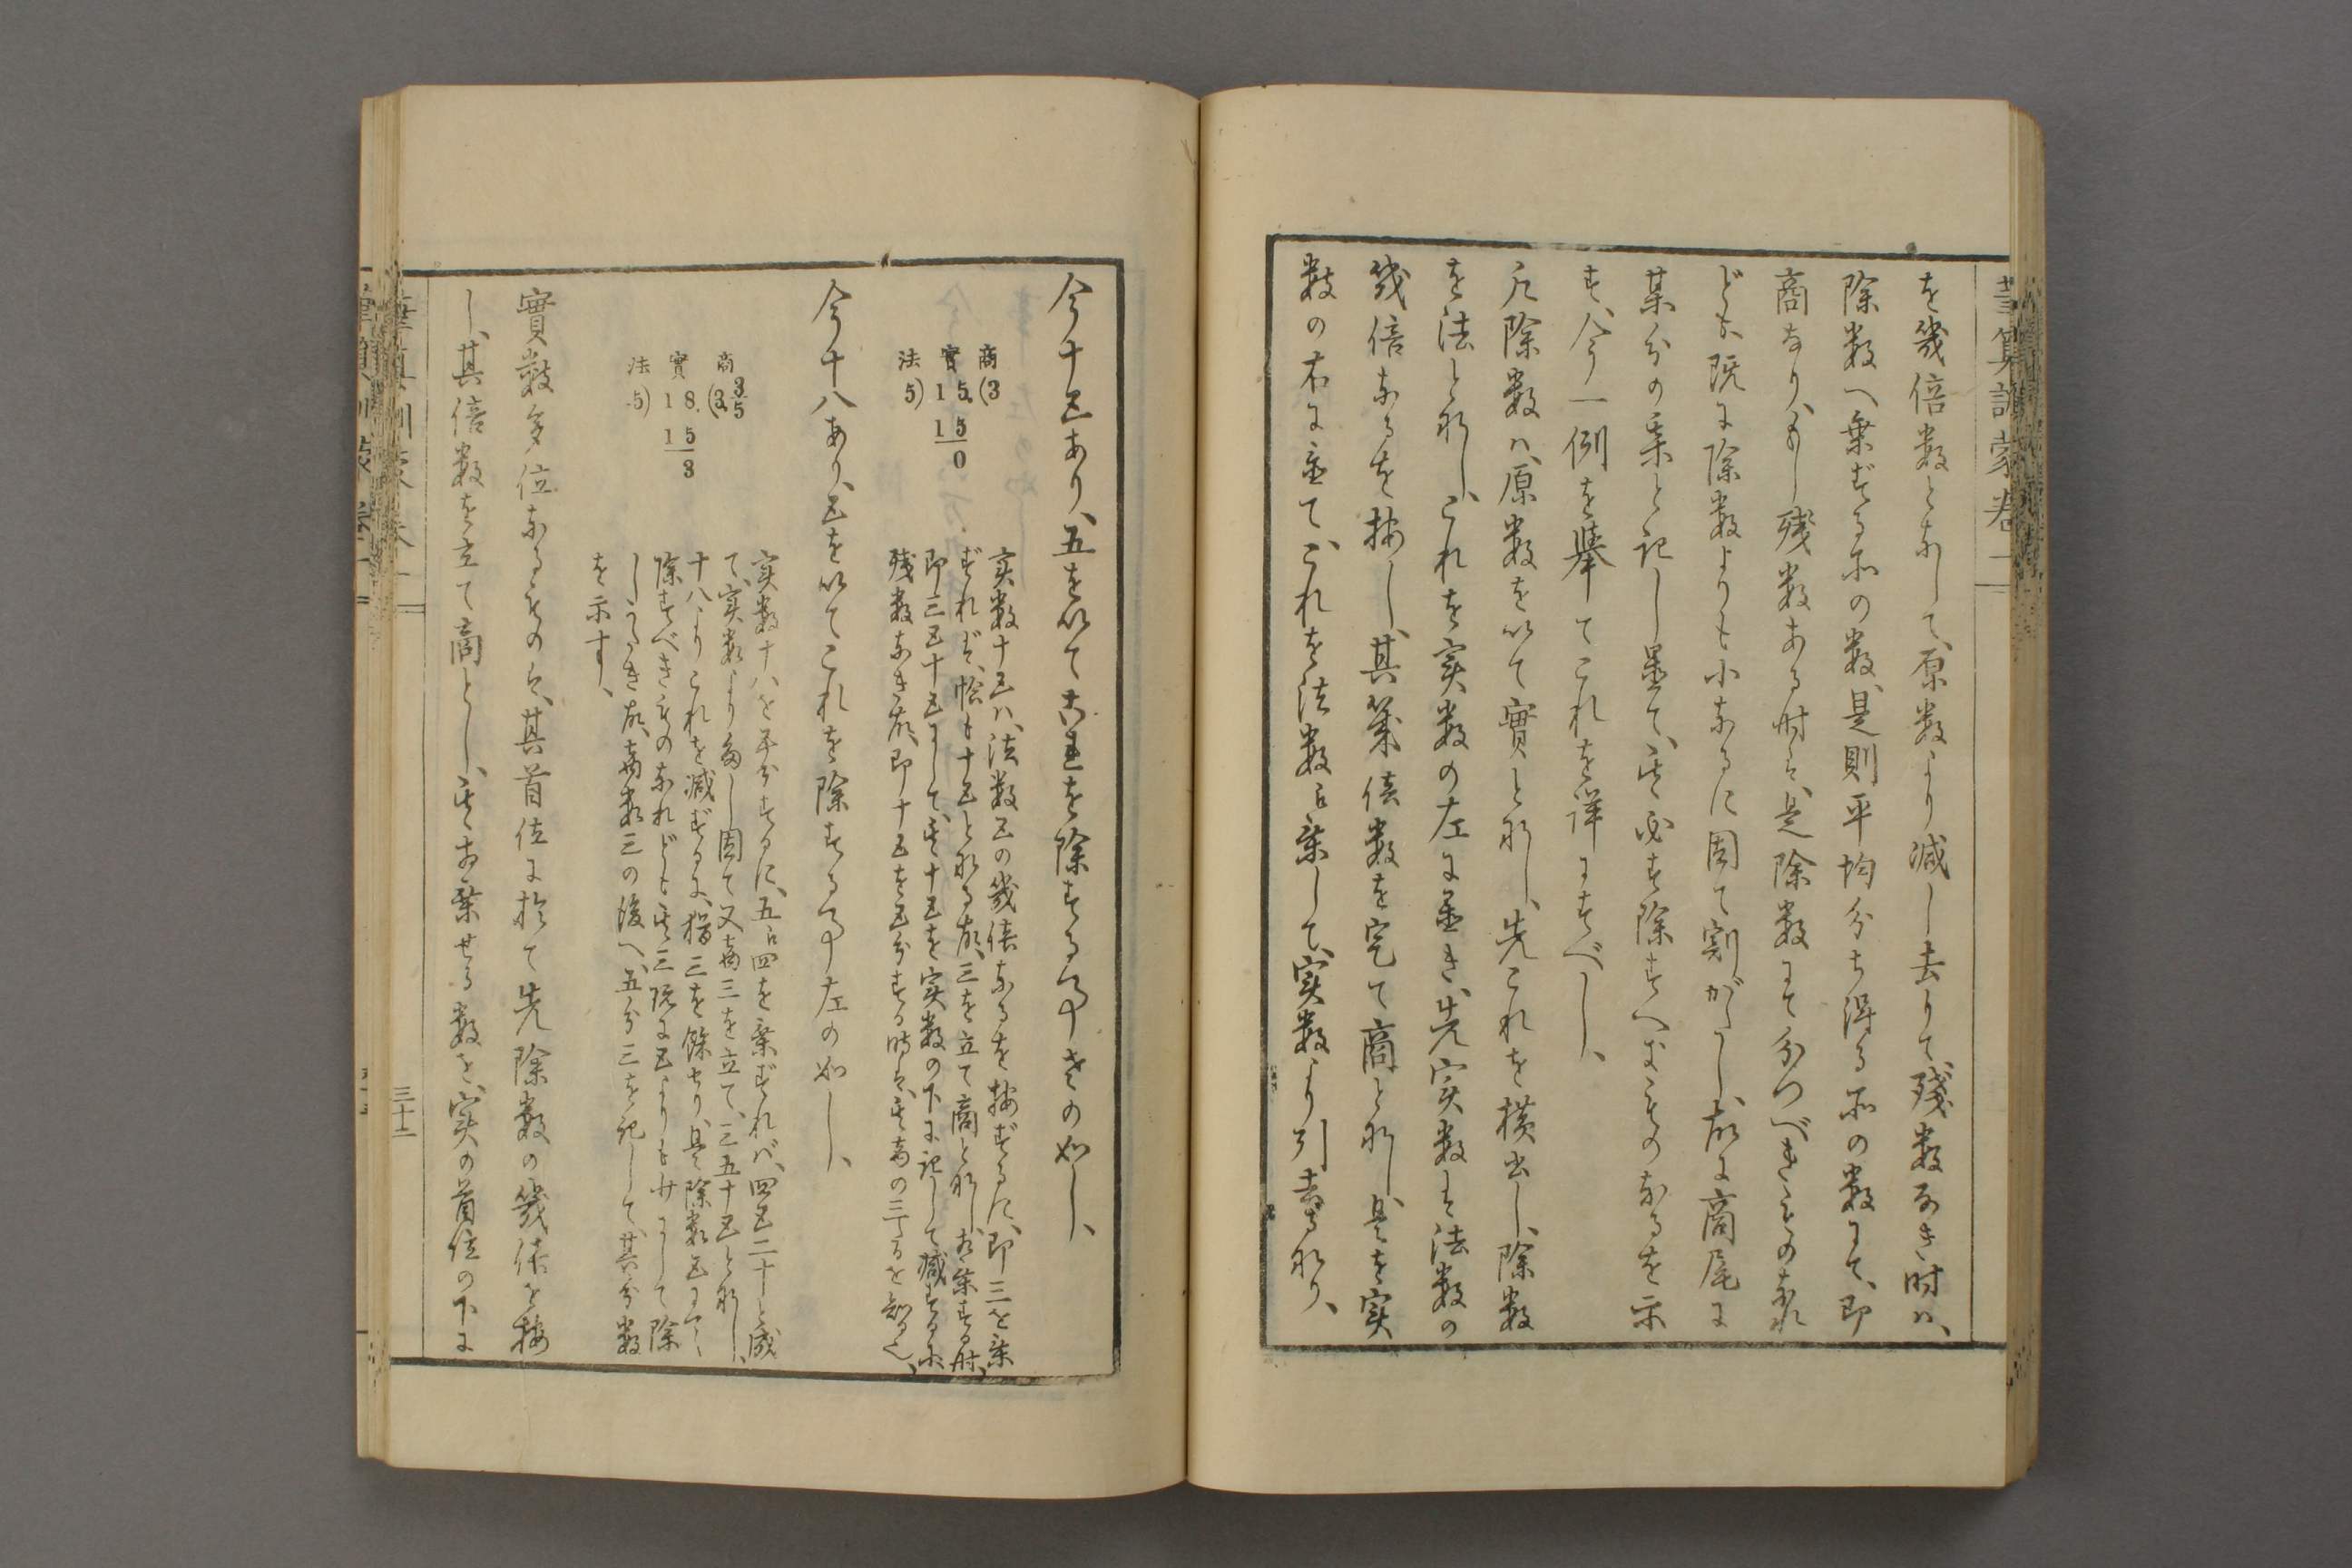 筆算訓蒙卷一
を幾倍数となして、原数より減し去りて、残数なき時ハ、
除数へ乗ずる所の数、是則平均分ち得る所の数にて、即
商なり、もし残数ある時は、是除数にて分つべきものなれ
ども、既に除数よりも小なるに因て割がたし、故に商尾に
某分の某と記し置て、
除すべきものなるを示
す、今一例を舉てこれを詳にすべし、
凡除数ハ、原数を以て實と為し、先これを横出し、除数
を法と為し、これを実数の左に置き、先実数は法数の
幾倍なるを按し、其幾倍数を定て商と為し、是を実
数の右に置て、これを法数に乗して、実数より引去るなり、
今十五あり、五を以て
を除する事左の如し、
商 實 法
5) 15. (3
15
0
実数十五ハ、法数五の幾倍なるを按ずるに、即三を乗
ずれば、恰も十五と為る故、三を立て商と為し、
乗する時、
即三五十五にして、其十五を実数の下に記して減するに、
残数なき故、即十五を五分する時は、其商の三なるを知る也、
今十八あり、五を以てこれを除する事左の如し、
商 實 法
5) 18. (3 3/5
15
3
実数十八を五分するに、五に四を乗ずれバ、四五二十と成
て、実数より多し、因て又商三を立て、三五十五と為し、
十八よりこれを減ずるに、猶三を餘せり、是除数五にて
除すべきものなれども、其三既に五よりも少にして除
しがたき故、商数三の後へ、五分三を記して、其分数
を示す、
實数多位なるものは、其首位に於て先除数の幾倍を按
し、其倍数を立て商とし、其
乗せる数を、実の首位の下に
三十二